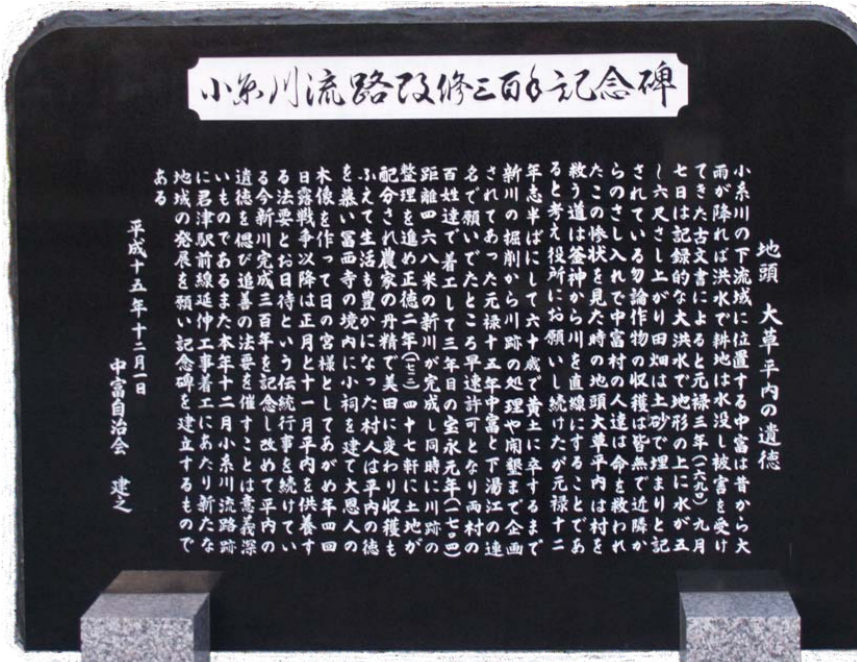 小糸川流路改修三百年記念碑
地頭 大草平内の遺徳
小糸川の下流域に位置する中富は昔から大
雨が降れば洪水で耕地は水没し被害を受け
てきた古文書によると元禄三年(一六九〇)九月
七日は記録的な大洪水で地形の上に水が五
し六尺さし上がり田畑は土砂で埋まりと記
されている勿論作物の収穫は皆無で近隣か
らのさし入れで中富村の人達は命を救われ
たこの惨状を見た時の地頭大草平内は村を
救う道は釜神から川を直線にすることであ
ると考え役所にお願いし続けたが元禄十二
年志半ばにして六十歳で黄土に卒するまで
新川の掘削から川跡の処理や開墾まで企画
されてあった元禄十五年中富と下湯江の連
名で願いでたところ早速許可となり両村の
百姓達で着工して三年目の宝永元年(一七〇四)
距離四六八米の新川が完成し同時に川跡の
整理を進め正徳二年(一七一二)四十七軒に土地が
配分され農家の丹精で美田に変わり収穫も
ふえて生活も豊かになった村人は平内の徳
を慕い冨西寺の境内に小祠を建て大恩人の
木像を作って日の宮様としてあがめ年四回
日露戦争以降は正月と十一月平内を供養す
る法要とお日待という伝統行事を続けてい
る今新川完成三百年を記念し改めて平内の
遺徳を偲び追善の法要を催すことは意義深
いものであるまた本年十二月小糸川流路跡
に君津駅前線延伸工事着工にあたり新たな
地域の発展を願い記念碑を建立するもので
ある
平成十五年十二月一日
中富自治会 建之